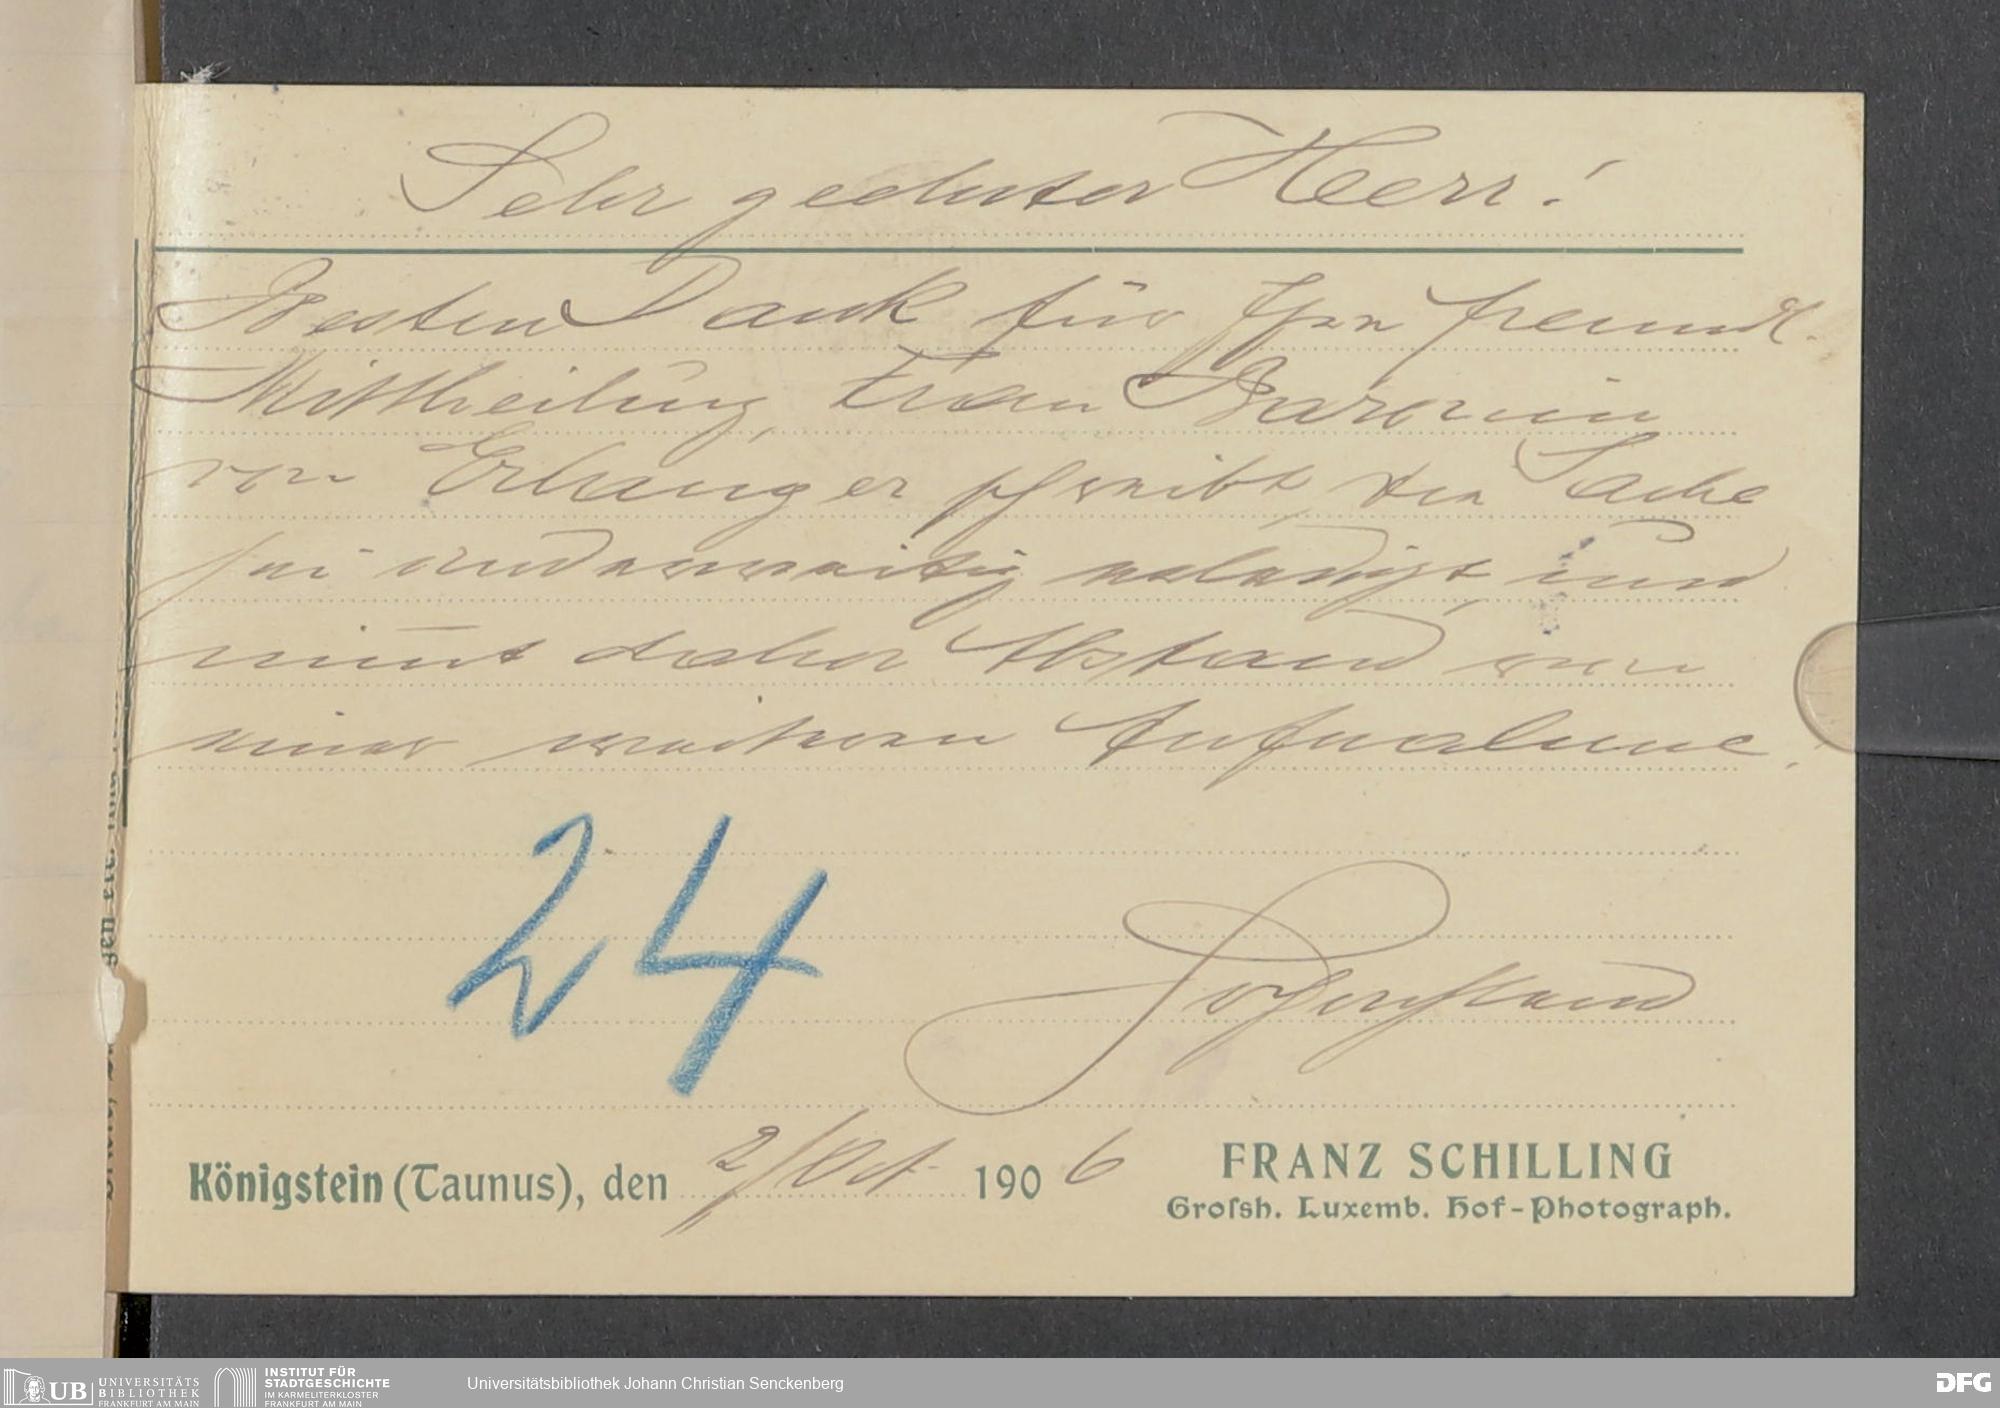 Sehr geehrter Herr!
Besten Dank für Ihre freundl.
Mittheilung, Frau Baronin
von Erlanger schreibt, die Sache
sei anderweitig erledigt, und
nim̅t daher Abstand von
einer weiteren Aufnahme.
24
Königstein (Taunus), den 2/Oct. 1906
FRANZ SCHILLING
Groſsh. Luxemb. Hof-Photograph.
UB UNIVERSITÄTS
BIBLIOTHEK
FRANKFURT AM MAIN
INSTITUT FÜR
STADTGESCHICHTE
IM KARMELITERKLOSTER
FRANKFURT AM MAIN
Universitätsbibliothek Johann Christian Senckenberg
DFG